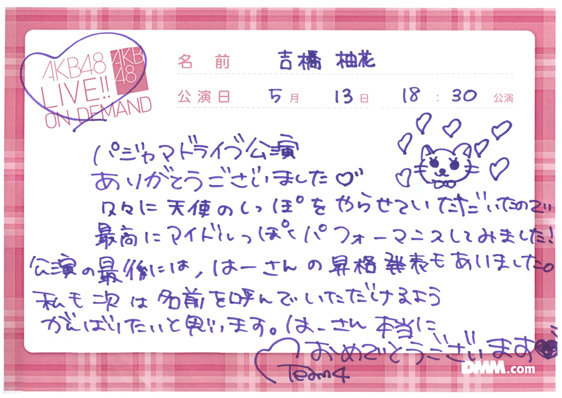 AKB48
LIVE!!
ON DEMAND
AKB
48
名前 吉橋 柚花
公演日 5月 13日 18:30 公演
パジャマドライブ公演
ありがとうございました
久々に天使のしっぽをやらせていただいたので
最高にアイドルっぽくパフォーマンスしてみました!
公演の最後には,はーさんの昇格発表もありました。
私も次は名前を呼んでいただけるよう
がんばりたいと思います。はーさん本当に
おめでとうございます
Team4
DMM.com